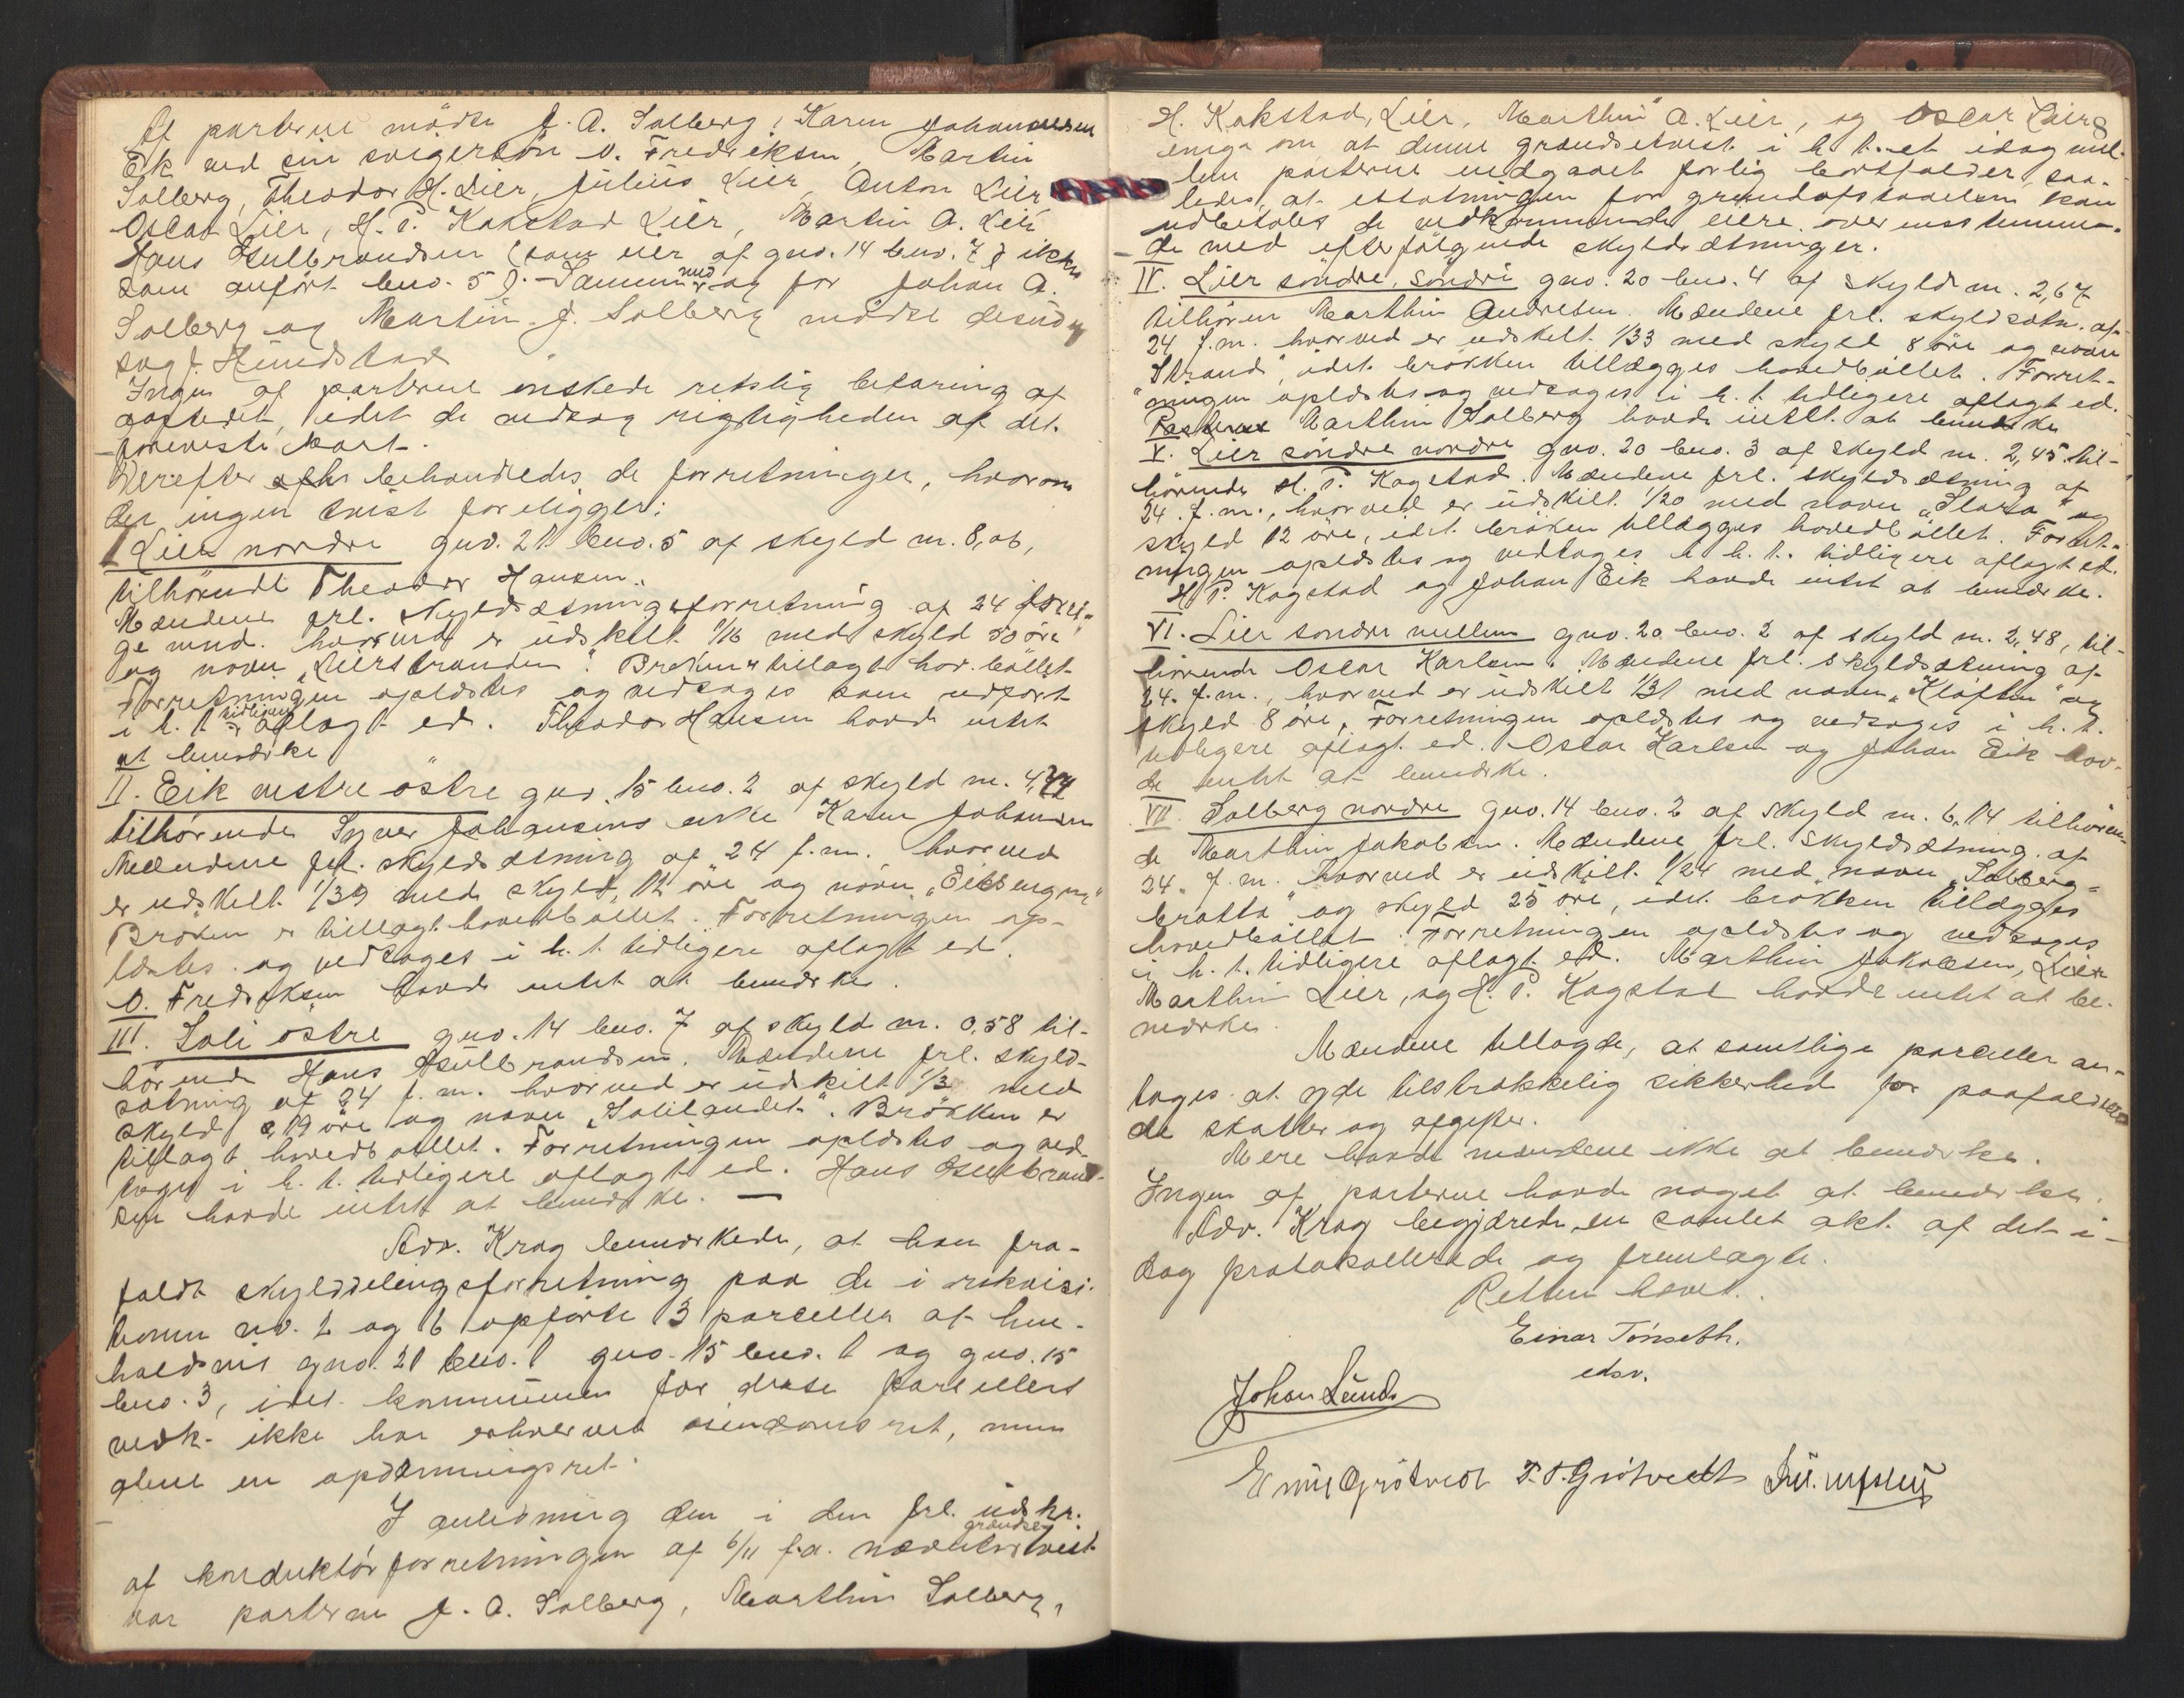 Af parterne mødte J. A. Solberg, Karen Johannesen
Eik ved sin svigersøn O. Fredriksen, Martin
Solberg, Theodor H. Lier, Julius Lier, Anton Lier
Oscar Lier, H. P. Kokstad Lier, Martin A. Lier
Hans Gulbrandsen (som eier af gno. 14 bno. 7 ikke
som anført bno. 5). Sammen med og for Johan A.
Solberg og Martin J. Solberg mødte desuden
sagf. Hundstad
Ingen af parterne ønskede retslig befaring af
aastedet, idet de vedtog rigtigheden af det
foreviste kart.
Derefter behandledes de forretninger, hvorom
der ingen tvist foreligger:
I Lier nordre gno. 21 bno. 5 af skyld m. 8,06,
tilhørende Theodor Hansen.
Mændene frl. skyldsætningsforretning af 24 forri-
ge mnd. hvorved er udskilt 1/16 med skyld 50 øre
og navn "Lierstranden". Brøken tillagt hov. bøllet
Forretningen oplæstes og vedtoges som udført
i h. t. tidligere aflagt ed. Theodor Hansen havde intet
at bemærke
II. Eik vestre østre gno. 15 bno. 2 af skyld m. 4,74
tilhørende Syver Johansens enke Karen Johansen
Mændene frl. skyldsætning af 24 f. m. hvorved
er udskilt 1/39 med skyld 12 øre og navn "Eiksengen"
Brøken er tillagt hovedbøllet. Forretningen op-
læstes og vedtoges i h. t. tidligere aflagt ed.
O. Fredriksen havde intet at bemærke.
III. Soli østre gno. 14 bno. 7 af skyld m. 0,58 til-
hørende Hans Gulbrandsen. Mændene frl. skyld-
sætning af 24 f. m. hvorved er udskilt 1/3 med
skyld 0,19 øre og navn "Solilandet". Brøken er
tillagt hovedbøllet. Forretningen oplæstes og ved-
toges i h. t. tidligere aflagt ed. Hans Gulbrand-
sen havde intet at bemærke. —
Adv. Krag bemærkede, at han fra-
faldt skylddelingsforretning paa de i rekvisi-
tionen no. 2 og 6 opførte 3 parceller af hen-
holdsvis gno. 21 bno. 1 gno. 15 bno. 1 og gno. 15
bno. 3, idet kommunen for disse parcellers
vedk. ikke har erhvervet eiendomsret, men
alene en opdæmningsret.
I anledning den i den frl. udskr.
af konduktørforretningen af 6/11 f. a. nævnte grændsetvist
var parterne J. A. Solberg, Marthin Solberg,
H. Kokstad, Lier, Marthin A. Lier, og Oscar Lier 8
enige om at denne grændsetvist i h. t. et idag mel-
lem parterne indgaaet forlig bortfalder, saa-
ledes, at erstatningen for grundafstaaelsen kan
udbetales de vedkommende eiere overensstemmen-
de med efterfølgende skyldsætninger.
IV. Lier søndre, søndre gno. 20 bno. 4 af skyld m. 2,67
tilhører Marthin Andresen. Mændene frl. skyldsætn. af
24 f. m. hvorved er udskilt 1/33 med skyld 8 øre og navn
"Strand", idet brøkken tillægges hovedbøllet. Forret-
ningen oplæstes og vedtoges i h. t. tidligere aflagt ed.
Parterne Marthin Solberg havde intet at bemærke
V. Lier søndre nordre gno. 20 bno. 3 af skyld m. 2,45 til-
hørende H. P. Kogstad. Mændene frl. skyldsætning af
24. f. m., hvorved er udskilt 1/20 med navn og
skyld 12 øre, idet brøken tillægges hovedbøllet. Forret-
ningen oplæstes og vedtoges i h. t. tidligere aflagt ed.
H. P. Kogstad og Johan Eik havde intet at bemærke.
VI. Lier søndre mellem gno. 20 bno. 2 af skyld m. 2,48, til-
hørende Oscar Karlsen. Mændene frl. skyldsætning af
24. f. m., hvorved er udskilt 1/31 med navn "Kløften" og
skyld 8 øre. Forretningen oplæstes og vedtoges i h. t.
tidligere aflagt ed. Oscar Karlsen og Johan Eik hav-
de intet at bemærke.
VII. Solberg nordre gno. 14 bno. 2 af skyld m. 6,14 tilhøren-
de Marthin Jakobsen. Mændene frl. skyldsætning af
24. f. m. hvorved er udskilt 1/24 med navn "Solberg-
bratta" og skyld 25 øre, idet brøkken tillægges
hovedbøllet. Forretningen oplæstes og vedtoges
i h. t. tidligere aflagt ed. Marthin Jakobsen, Lier
Marthin Lier, og H. P. Kogstad havde intet at be-
mærke.
Mændene tillagde, at samtlige parceller an-
toges at yde tilstrækkelig sikkerhed for paafaldende
skatter og afgifter.
Mere havde mændene ikke at bemærke.
Ingen af parterne havde noget at bemærke.
Adv. Krag begjærede en samlet akt af det i-
dag protokollerede og fremlagte.
Retten hævet.
Einar Tönseth.
edsv.
Johan Lund
Emil Grøtvedt P. P. Grøtvedt